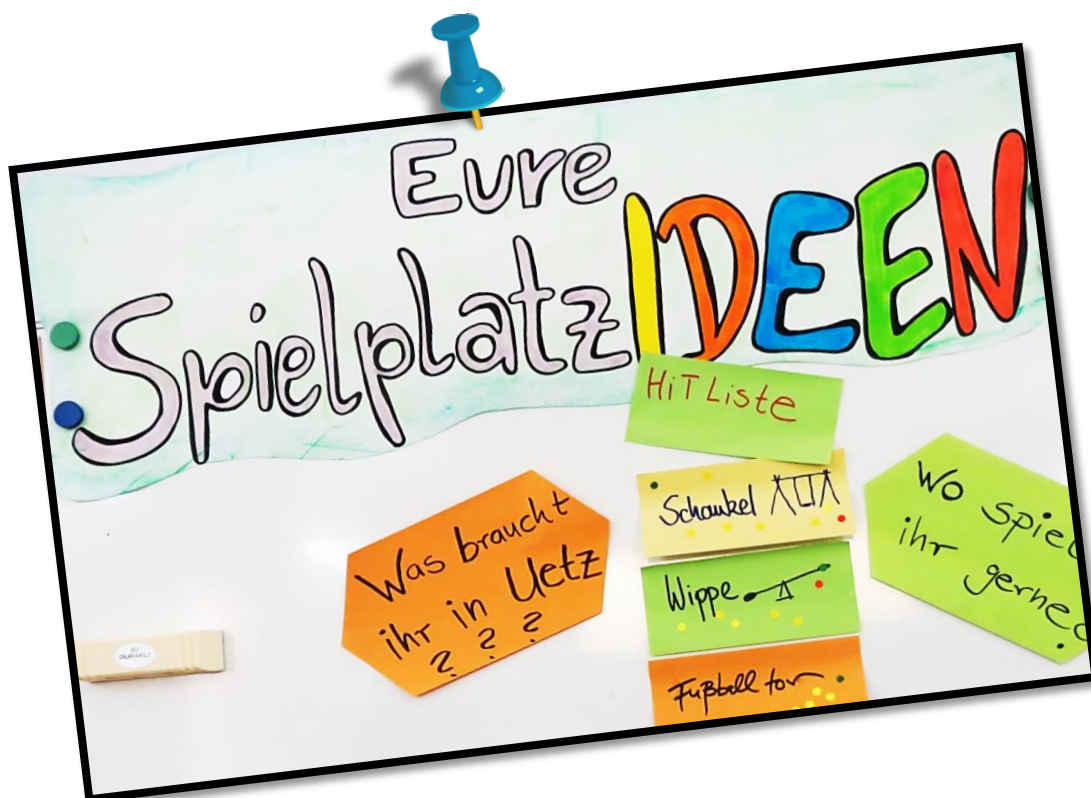 Eure
SpielplatzIDEEN
HiTListe
Schaukel
Wippe
Fußball tor
Was braucht
ihr in Uetz
? ? ?
Wo spiel
ihr gerne